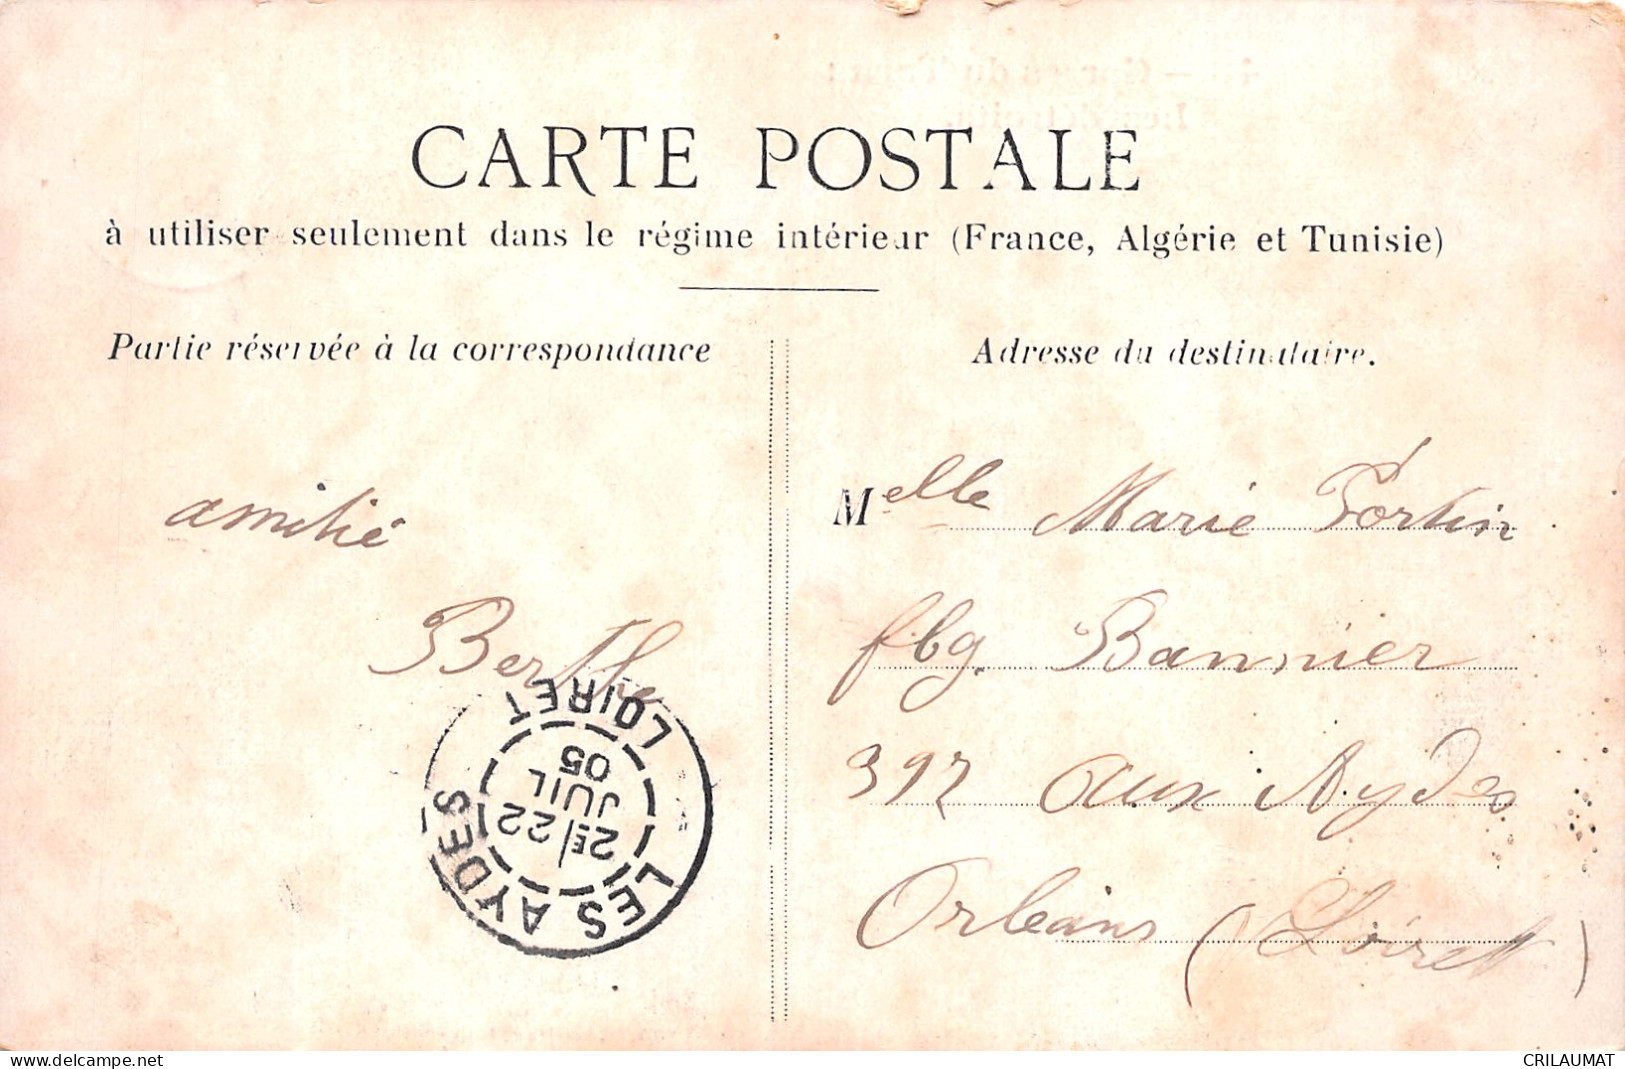 CARTE POSTALE
à utiliser seulement dans le régime intérieur (France, Algérie et Tunisie)
Partie réservée à la correspondance
Adresse du destinataire.
amitié
Berthe
Melle Marie Fortin
fbg. Bannier
397 aux Aydes
Orléans (Loiret)
LES AYDES
LOIRET
2E/22
JUIL
05
www.delcampe.net
CRILAUMAT